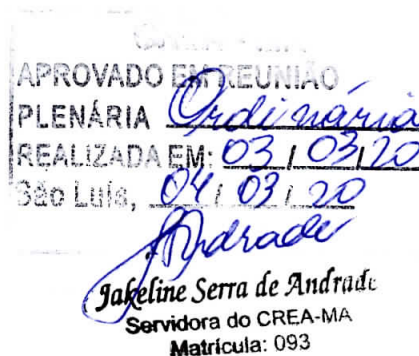 APROVADO EM REUNIÃO
PLENÁRIA Ordinária
REALIZADA EM: 03 / 03 / 20
São Luís, 04 / 03 / 20
Andrade
Jakeline Serra de Andrade
Servidora do CREA-MA
Matrícula: 093